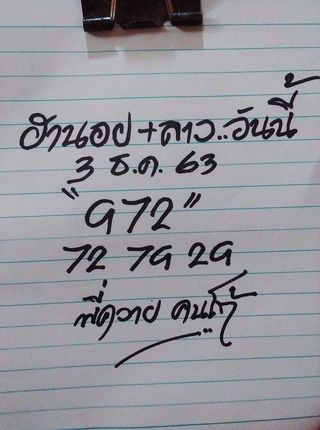 ฮานอย+ลาว..วันนี้
3 ธ.ค. 63
"972"
72 79 29
พี่ควาย คนโก้